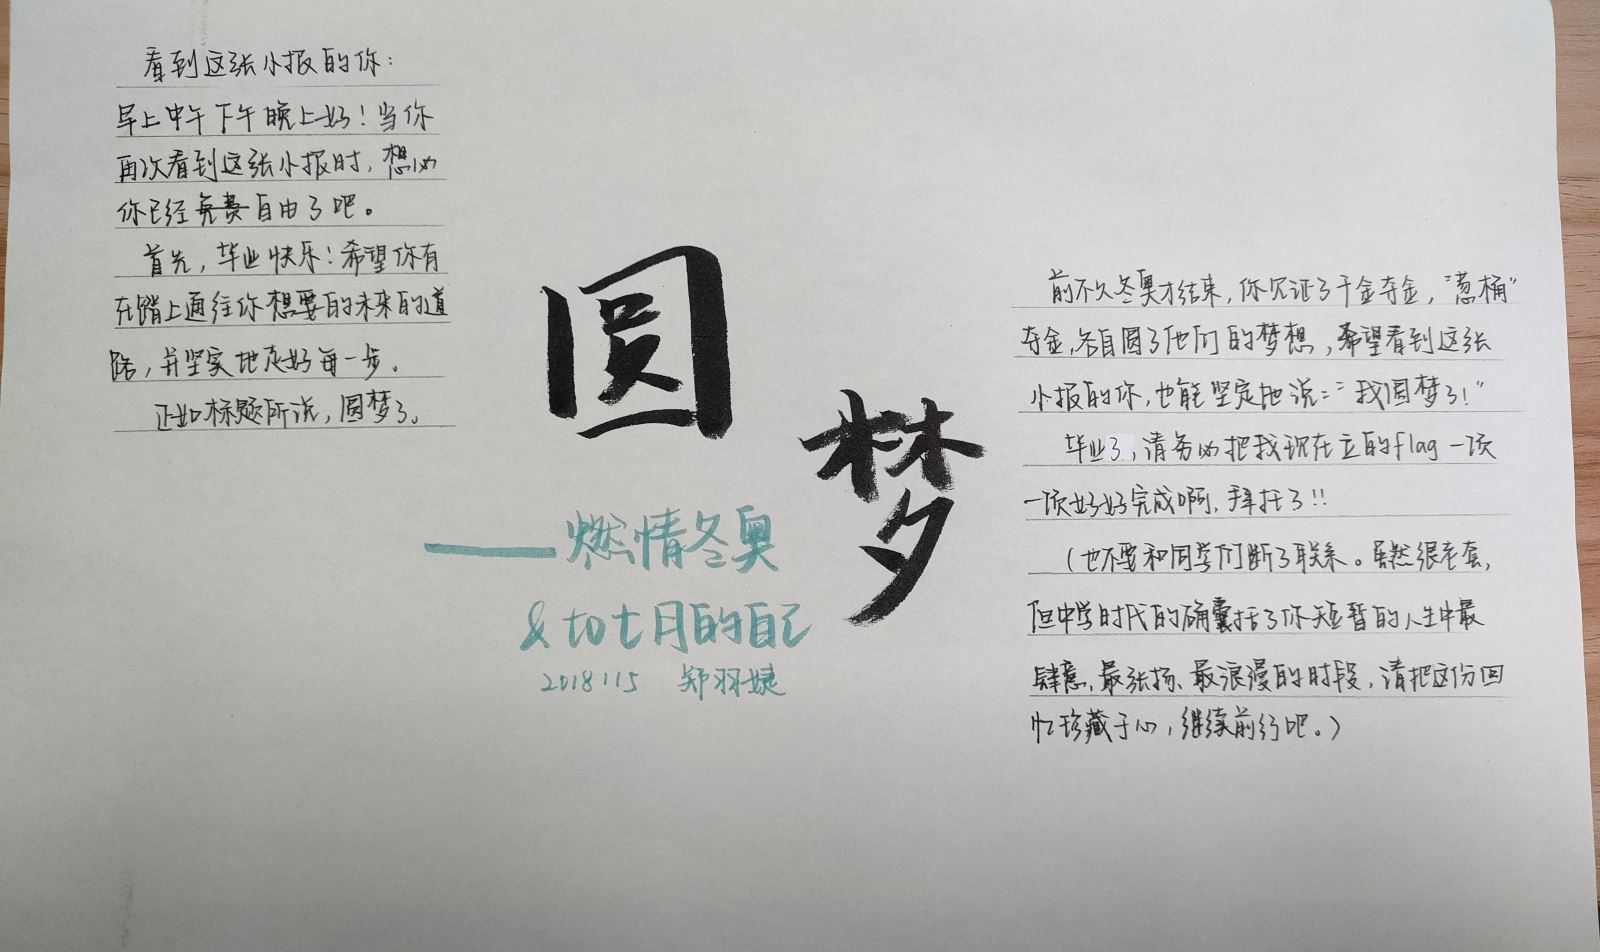 看到这张小报的你：
早上中午下午晚上好！当你
再次看到这张小报时，想必
你已经免费自由了吧。
首先，毕业快乐！希望你有
在踏上通往你想要的未来的道
路，并坚实地走好每一步。
正如标题所说，圆梦了。
圆
梦
——燃情冬奥
& to 七月的自己
2018115 郑羽婕
前不久冬奥才结束，你见证了千金夺金，“葱桶”
夺金，各自圆了他们的梦想，希望看到这张
小报的你，也能坚定地说：“我圆梦了！”
毕业了，请务必把我现在立的flag一项
一项好好完成啊，拜托了！！
（也不要和同学们断了联系。虽然很老套，
但中学时代的确囊括了你短暂的人生中最
肆意、最张扬、最浪漫的时段，请把这份回
忆珍藏于心，继续前行吧。）